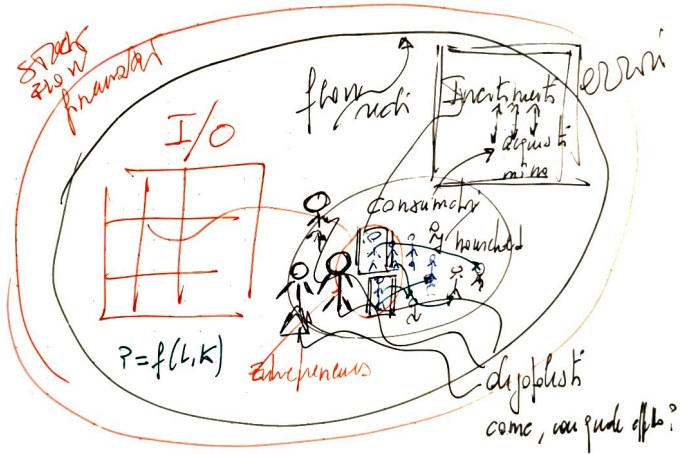 stock
flow
finanziari
I/O
flow
reali
Investimenti
acquisti
errori
consumatori
household
P=f(L,K)
Entrepreneurs
oligopolisti
come, con quale effetto?